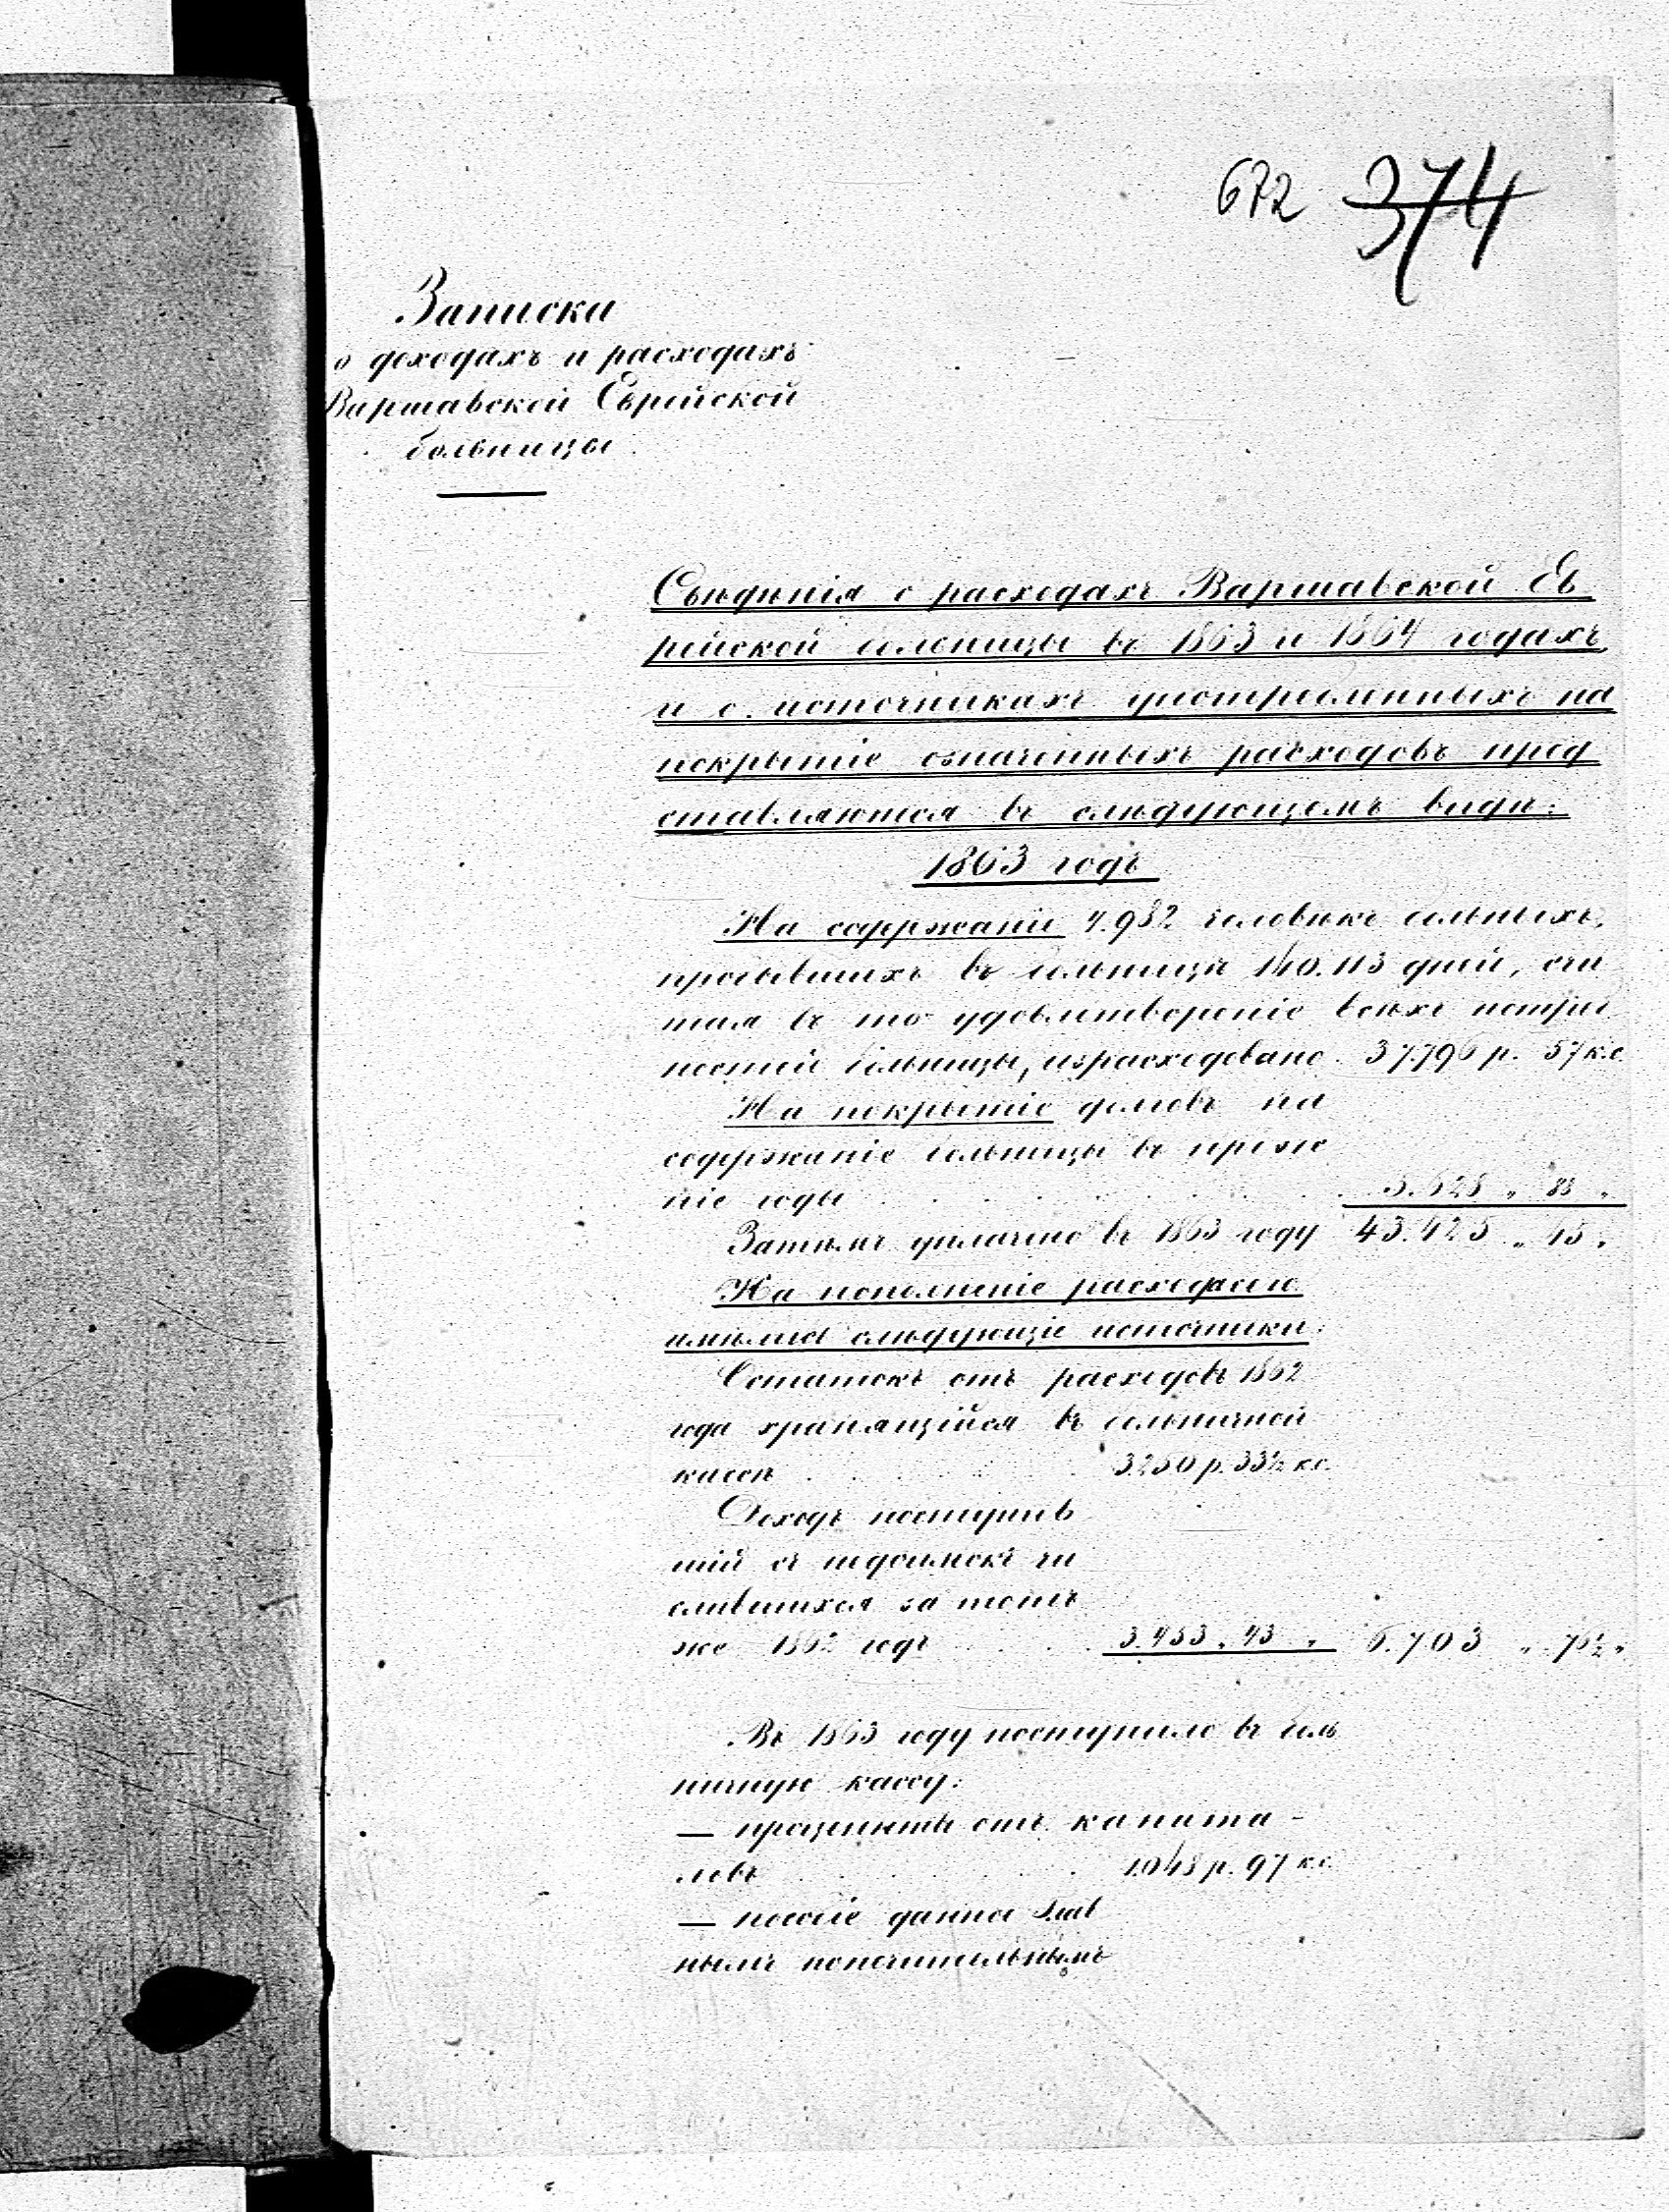 672 374
Записка
о доходахъ и расходахъ
Варшавской Еврейской
больницы.
Свѣдѣнія о расходахъ Варшавской Ев
рейской больницы въ 1863 и 1864 годахъ,
и о источникахъ употребленныхъ на
покрытіе означенныхъ расходовъ пред
ставляются въ слѣдующемъ видѣ:
1863 годъ
На содержаніе 4.982 человѣкъ больныхъ,
пробывшихъ въ больницѣ 140.113 дней, счи
тая въ то удовлетвореніе всѣхъ потреб
ностей больницы, израсходовано 37.796 р. 57 к.с.
На покрытіе долговъ на
содержаніе больницы въ преж
ніе годы . . . . . 5.628 " 88 "
Затѣмъ уплачено въ 1863 году 43.425 " 45 "
На пополненіе расхода сего
имѣлись слѣдующіе источники:
Остатокъ отъ расходовъ 1862
года хранящійся въ больничной
кассѣ . . . . . 3250 р. 33½ к.с.
Доходъ поступив
шій съ недоимокъ чи
слившихся за тотъ
же 1862 годъ . . . 3.453 " 43 " 6.703 " 76½ "
Въ 1863 году поступило въ боль
ничную кассу:
— проценты отъ капита-
ловъ . . . . . 1.048 р. 97 к.с.
— пособіе данное Глав
нымъ попечительнымъ